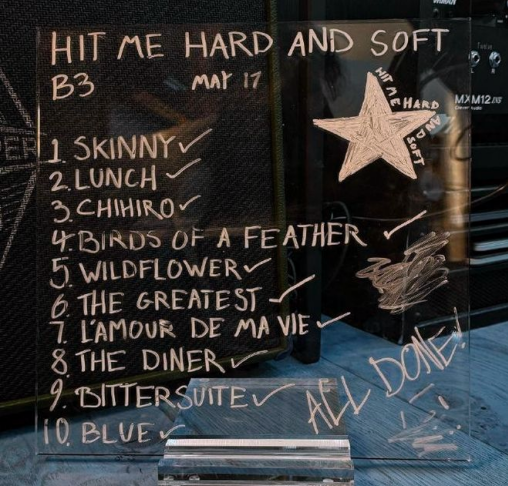 HIT ME HARD AND SOFT
B3 MAY 17
HIT ME HARD AND SOFT
MXM12.
1. SKINNY ✓
2. LUNCH ✓
3. CHIHIRO ✓
4. BIRDS OF A FEATHER ✓
5. WILDFLOWER ✓
6. THE GREATEST ✓
7. L'AMOUR DE MA VIE ✓
8. THE DINER ✓
9. BITTERSUITE ✓
10. BLUE ✓
ALL DONE!